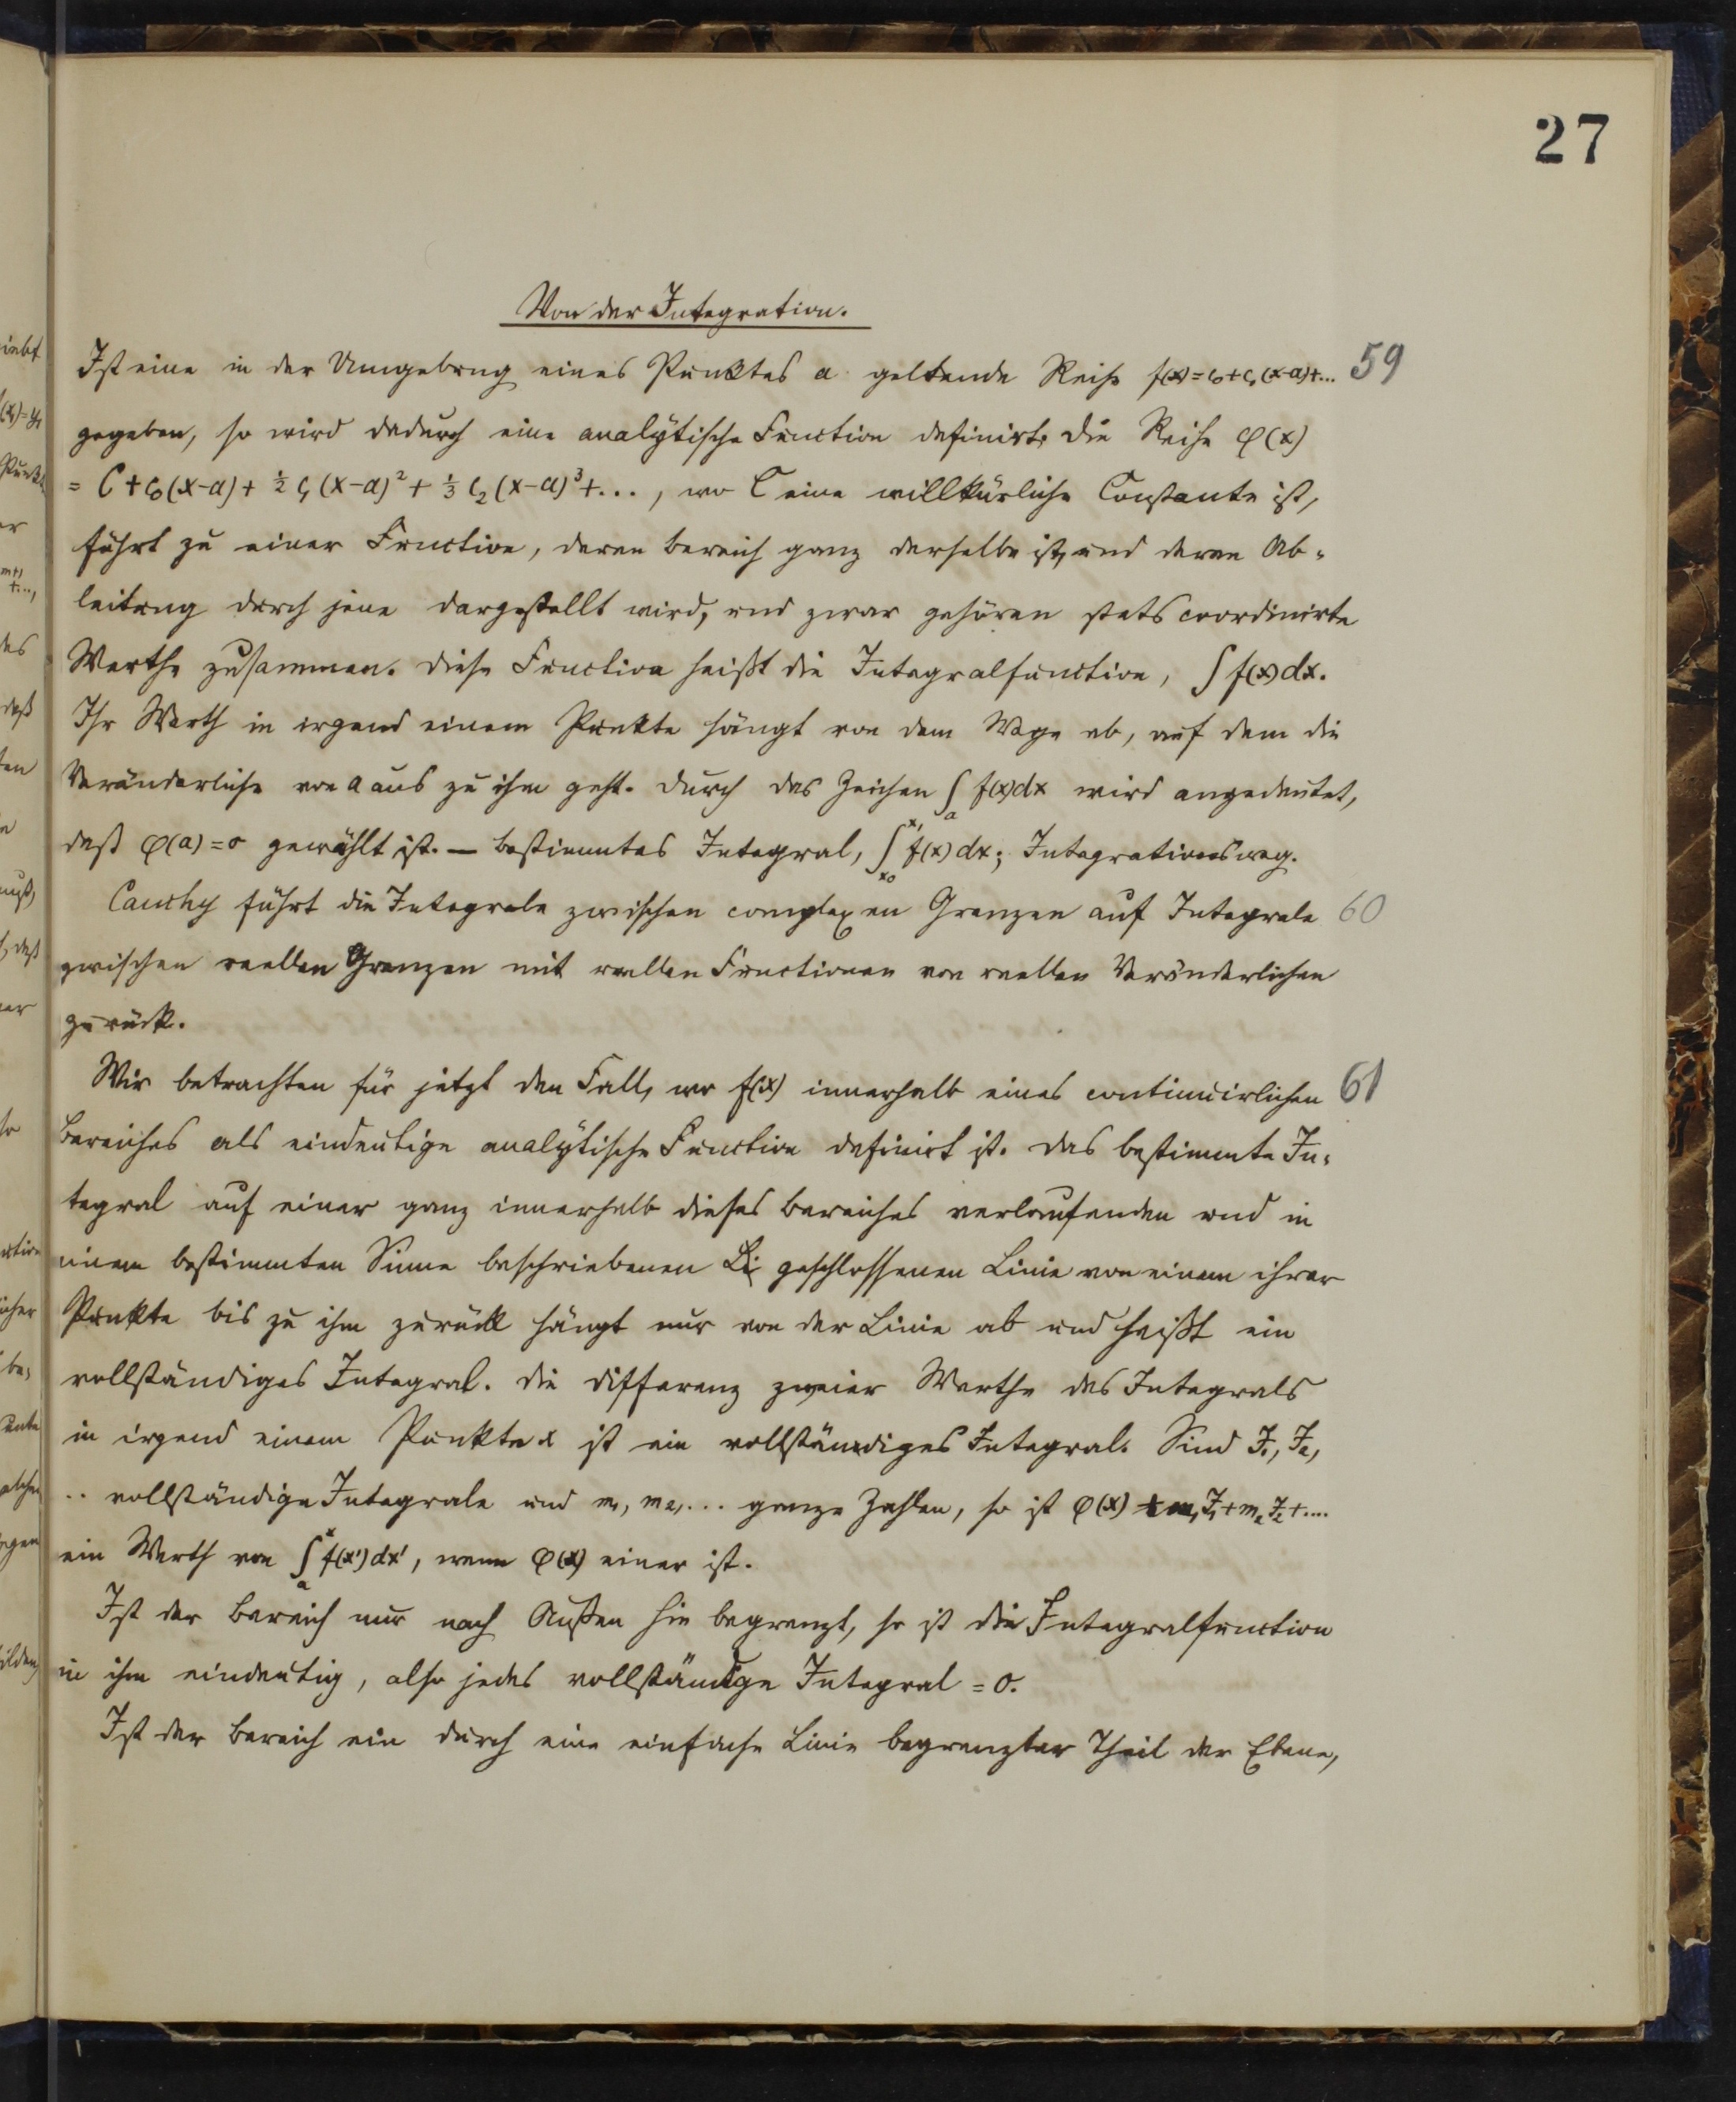 27
Von der Integration.
Ist eine in der Umgebung eines Punktes a geltende Reihe f(x)=c₀+c₁(x-a)+... 59
gegeben, so wird dadurch eine analytische Function definirt. Die Reihe φ(x)
= C+c₀(x-a)+½c₁(x-a)²+⅓c₂(x-a)³+..., wo C eine willkürliche Constante ist,
führt zu einer Function, deren Bereich ganz derselbe ist, und deren Ab-
leitung durch jene dargestellt wird, und zwar gehören stets coordinirte
Werthe zusammen. Diese Function heißt die Integralfunction, ∫f(x)dx.
Ihr Werth in irgend einem Punkte hängt von dem Wege ab, auf dem die
Veränderliche von a aus zu ihm geht. Durch das Zeichen ∫ₐ f(x)dx wird angedeutet,
daß φ(a)=0 gewählt ist. — Bestimmtes Integral, ∫_{x₀}^{x₁} f(x)dx; Integrationsweg.
Cauchy führt die Integrale zwischen complexen Grenzen auf Integrale 60
zwischen reellen Grenzen mit reellen Functionen von reellen Veränderlichen
zurück.
Wir betrachten für jetzt den Fall, wo f(x) innerhalb eines continuirlichen 61
Bereiches als eindeutige analytische Function definirt ist. Das bestimmte In-
tegral auf einer ganz innerhalb dieses Bereiches verlaufenden und in
einem bestimmten Sinne beschriebenen Li geschlossenen Linie von einem ihrer
Punkte bis zu ihm zurück hängt nur von der Linie ab und heißt ein
vollständiges Integral. Die Differenz zweier Werthe des Integrals
in irgend einem Punkte x ist ein vollständiges Integral. Sind J₁, J₂,
.. vollständige Integrale und m₁, m₂,... ganze Zahlen, so ist φ(x)+m₁J₁+m₂J₂+....
ein Werth von ∫ₐˣ f(x')dx', wenn φ(x) einer ist.
Ist der Bereich nur nach Außen hin begrenzt, so ist die Integralfunction
in ihm eindeutig, also jedes vollständige Integral = 0.
Ist der Bereich ein durch eine einfache Linie begrenzter Theil der Ebene,